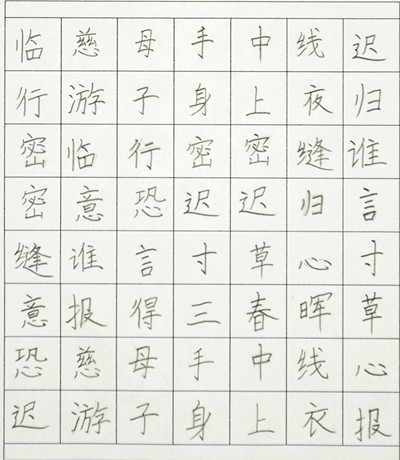 临慈母手中线迟
行游子身上夜归
密临行密密缝谁
密意恐迟迟归言
缝谁言寸草心寸
意报得三春晖草
恐慈母手中线心
迟游子身上衣报